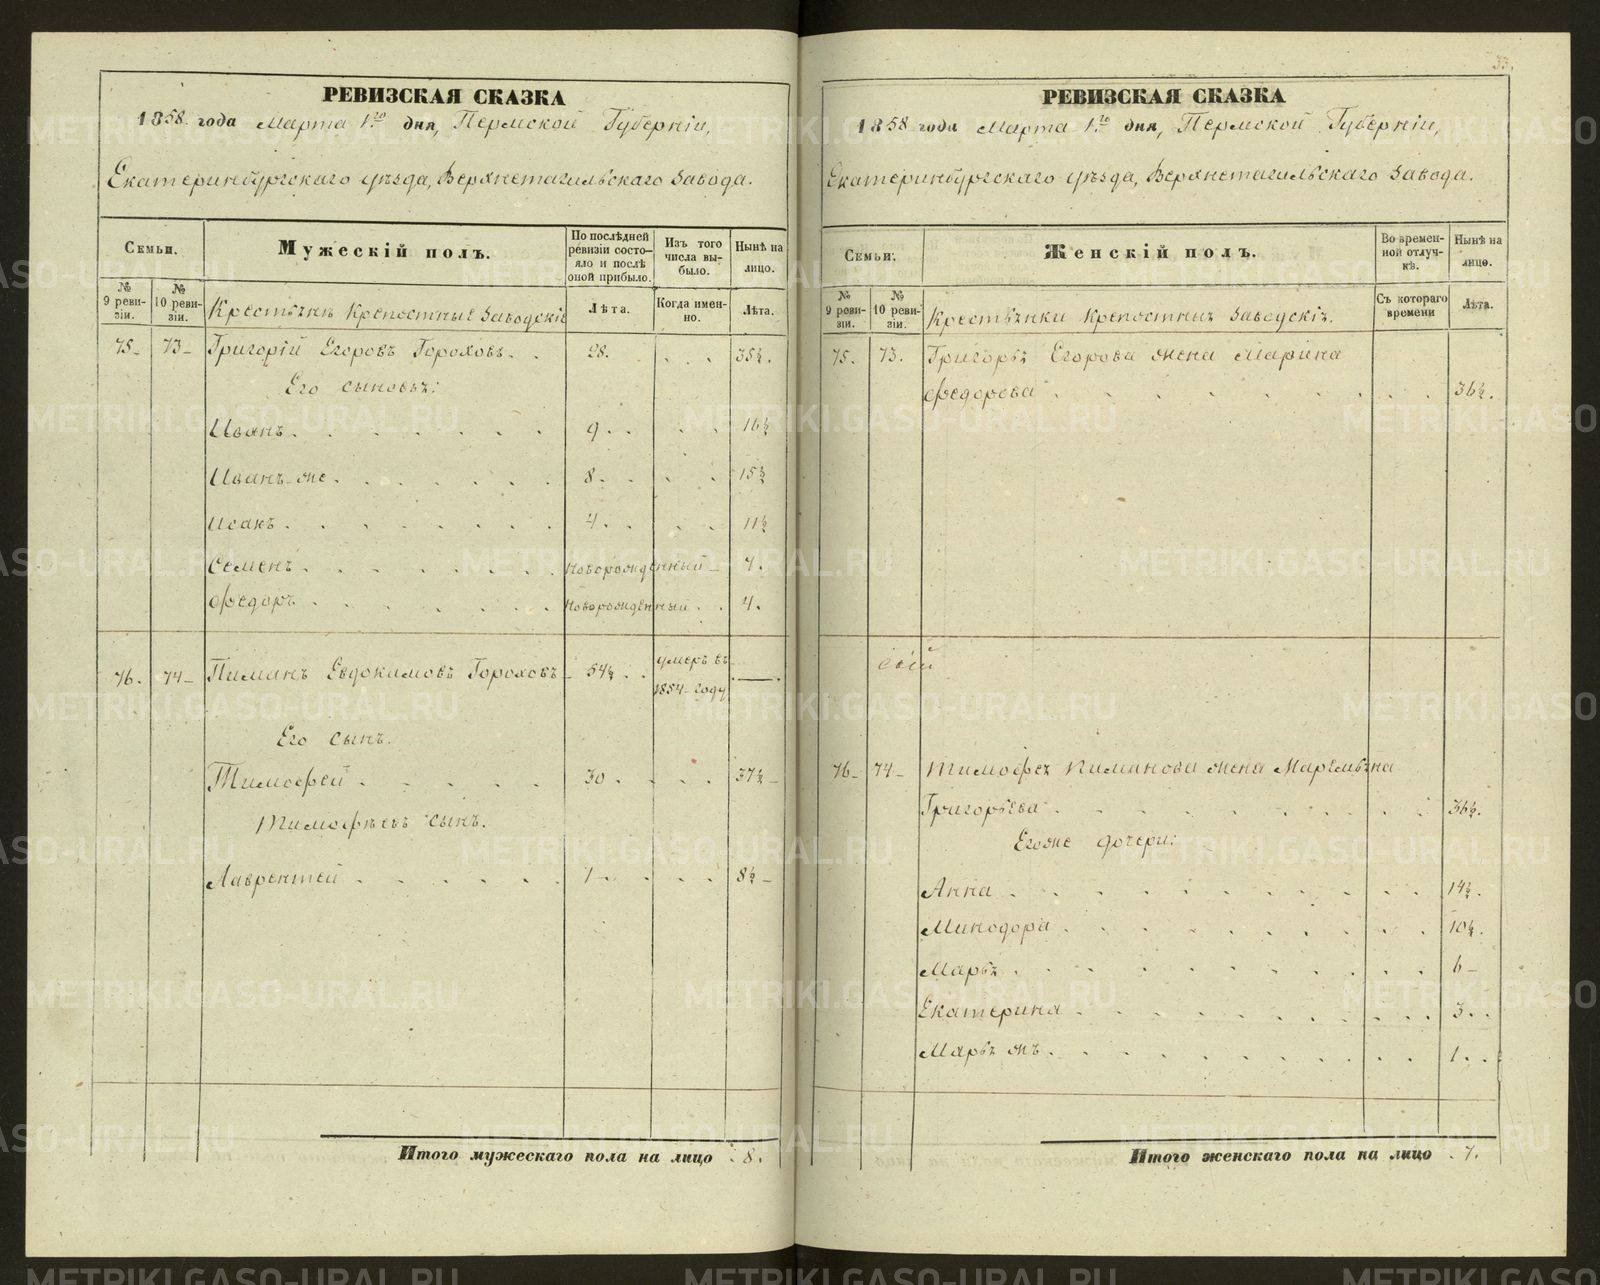 33.
РЕВИЗСКАЯ СКАЗКА
1858 года Марта 1го дня, Пермской Губерніи,
Екатеринбургскаго уѣзда, Верхнетагильскаго завода.
Семьи.
Мужескій полъ.
По послѣдней ревизіи состояло и послѣ оной прибыло.
Изъ того числа выбыло.
Нынѣ на лицо.
№ 9 ревизіи.
№ 10 ревизіи.
Крестьяне Крепостные Заводскіе
Лѣта.
Когда именно.
Лѣта.
75 73 Григорій Егоровъ Гороховъ. 28. 35½.
Его сыновья:
Иванъ. 9. 16½
Иванъ же. 8. 15½
Исакъ. 4. 11½
Семенъ. Новорожденный 7.
Федоръ. Новорожденный 4.
76. 74 Пиманъ Евдокимовъ Гороховъ 54½. умеръ въ 1854 году —
Его сынъ.
Тимофей 30. 37½
Тимофѣевъ сынъ.
Лаврентей 1. 8½
Итого мужескаго пола на лицо 8.
РЕВИЗСКАЯ СКАЗКА
1858 года Марта 1го дня, Пермской Губерніи,
Екатеринбургскаго уѣзда, Верхнетагильскаго завода.
Семьи.
Женскій полъ.
Во временной отлучкѣ.
Нынѣ на лицо.
№ 9 ревизіи.
№ 10 ревизіи.
Крестьянки Крепостныя Заводскія.
Съ котораго времени
Лѣта.
75. 73. Григорья Егорова жена Марина
Федорова 36½.
76 74 Тимофея Пиманова жена Маремьяна
Григорьева 36½.
Егоже дочери:
Анна 14½.
Минодора 10½.
Марья 6
Екатерина 3.
Марья жъ. 1.
Итого женскаго пола на лицо 7.
METRIKI.GASO-URAL.RU